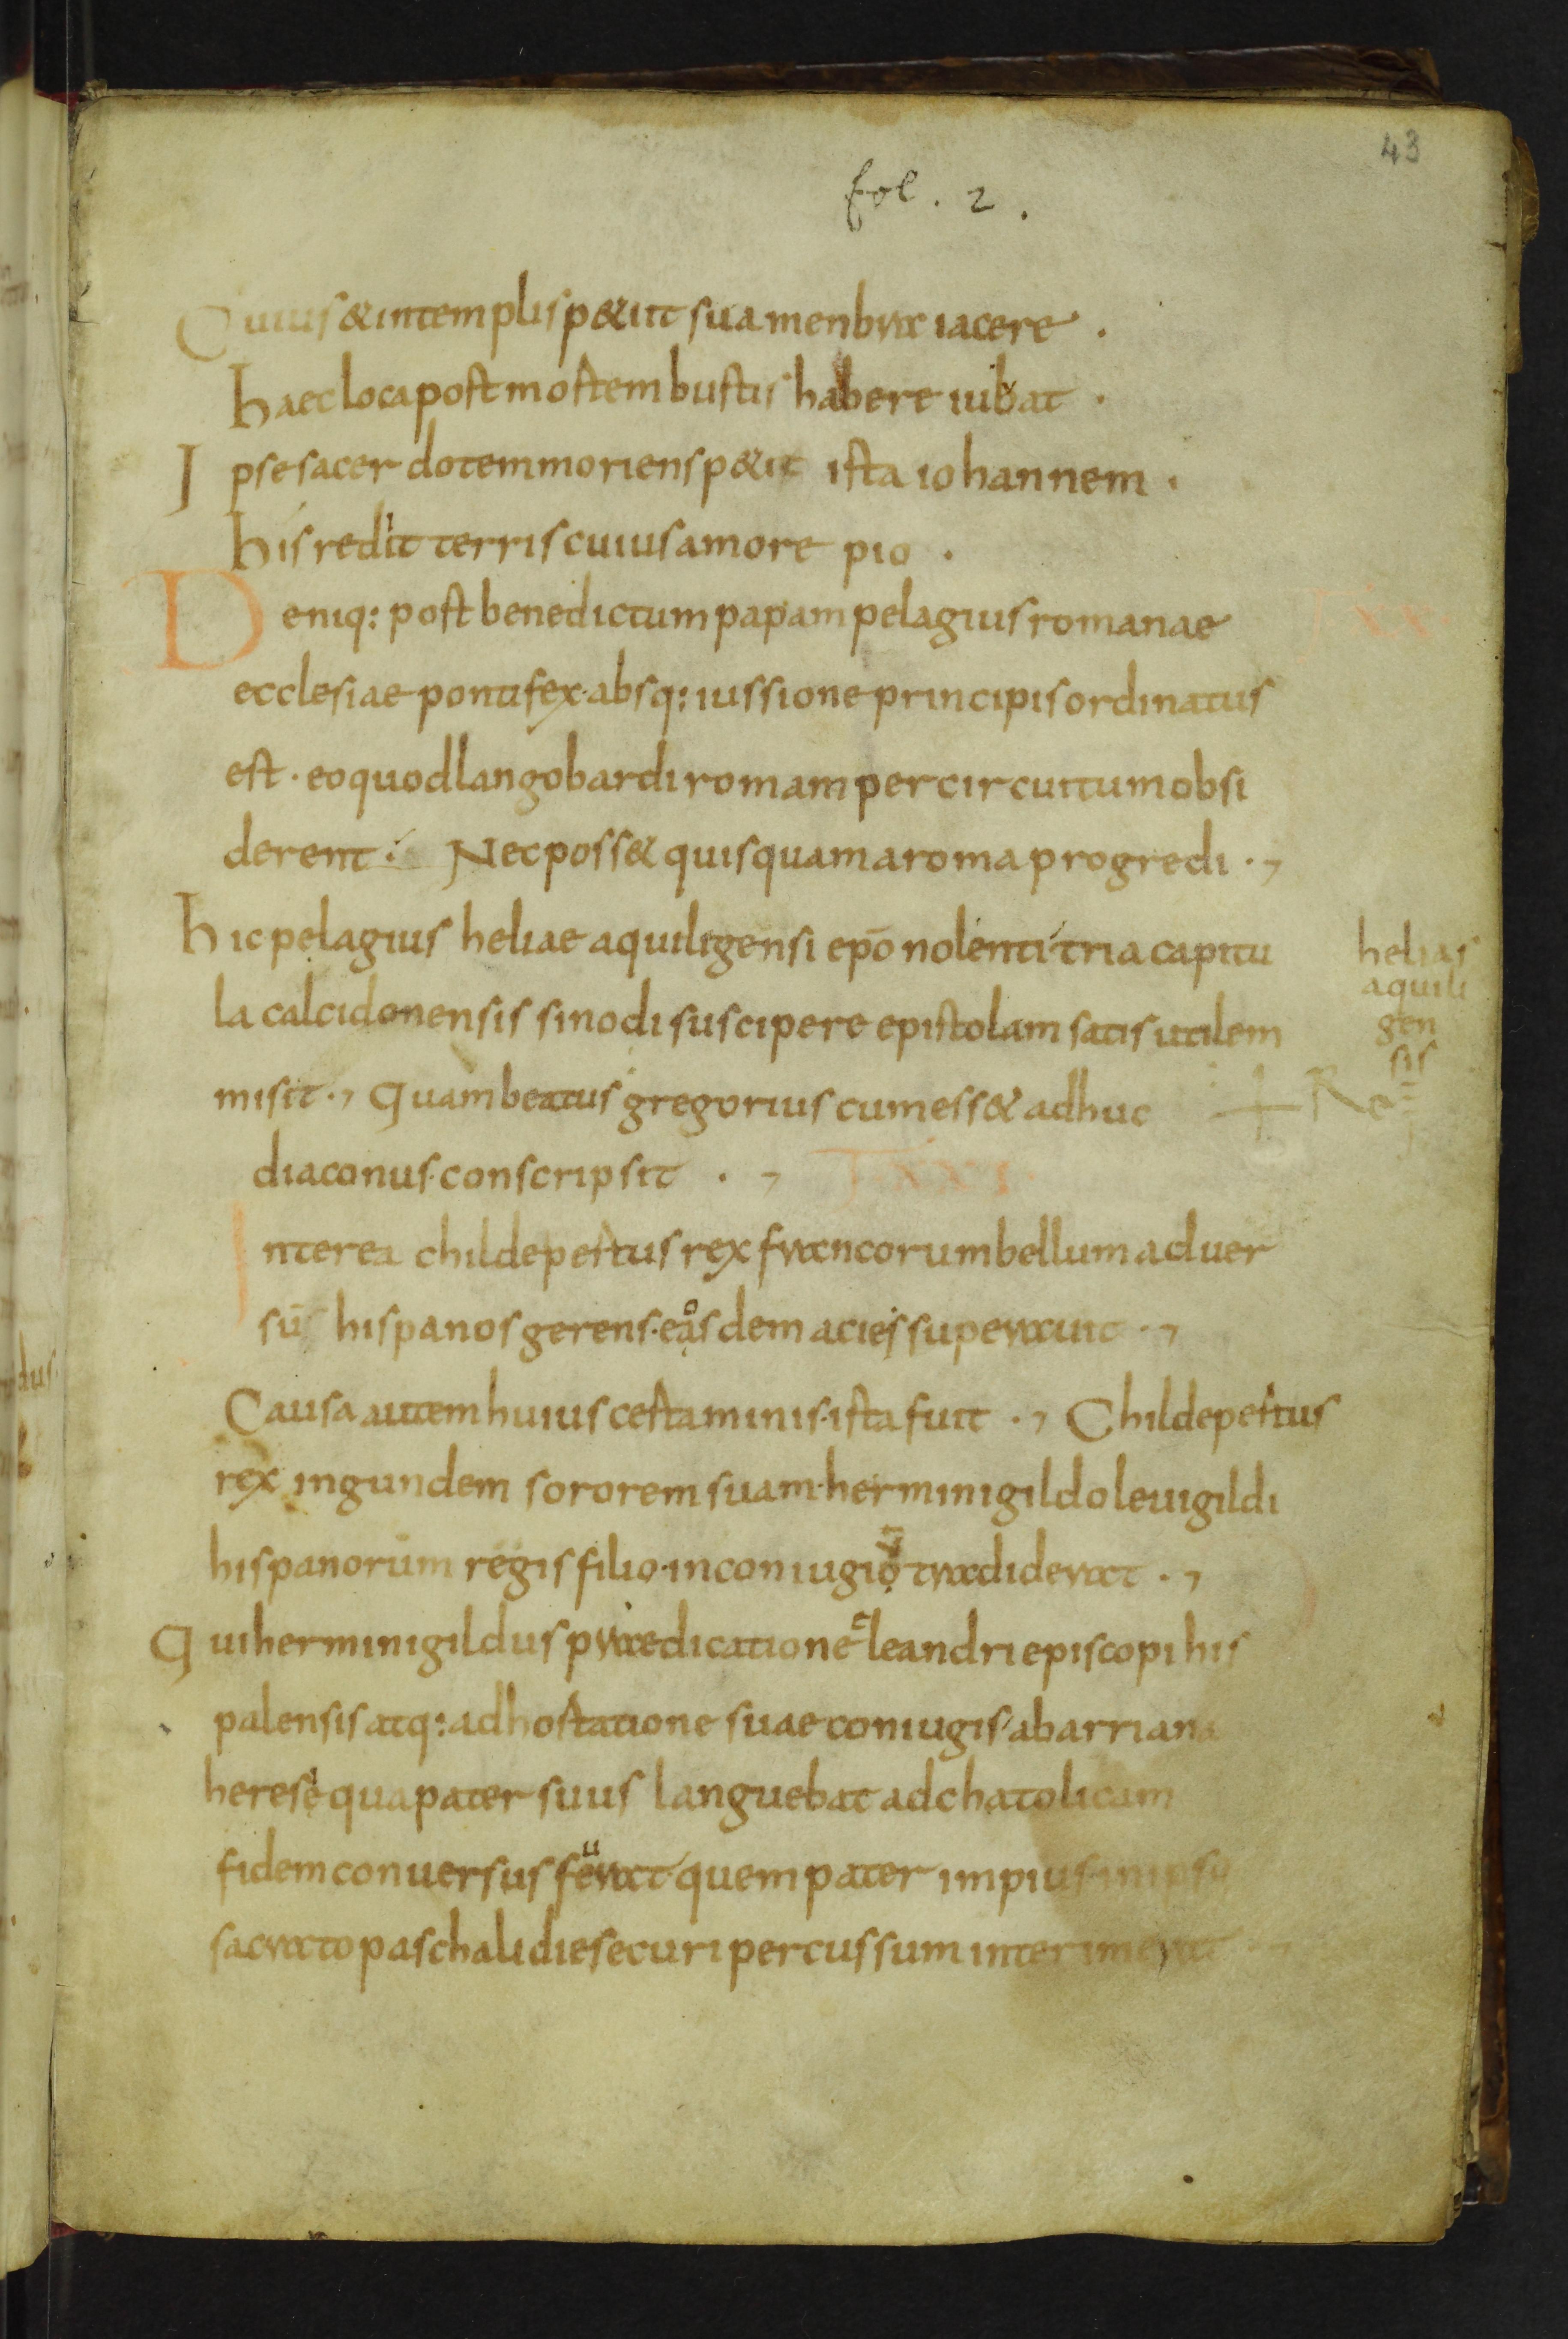 43
fol. 2.
Cuius & in templis p&iit sua menbra iacere .
haec loca post mortem bustis habere iubat .
Ipse sacerdotem moriens p&iit ista iohannem .
his rediit terris cuius amore pio .
Deniq: post benedictum papam pelagius romanae XX.
ecclesiae pontifex absq: iussione principis ordinatus
est . eo quod langobardi romam per circuitum obsi
derent . Nec poss& quisquam a roma progredi .,
hic pelagius heliae aquiligensi epō nolenti tria capitu
la calcidonensis sinodi suscipere epistolam satis utilem
misit ., Quam beatus gregorius cum ess& adhuc
diaconus conscripsit . , XXI.
helias
aquili
gen
sis
Interea childepertus rex francorum bellum aduer
sus hispanos gerens . eosdem acies superauit .,
Causa autem huius certaminis . ista fuit ., Childepertus
rex ingundem sororem suam . herminigildo leuigildi
hispanorum regis filio . in coniugiū tradiderat .,
Qui herminigildus praedicatione leandri episcopi his
palensis atq: adhortatione suae coniugis ab arriana
heresi qua pater suus languebat ad chatolicam
fidem conuersus fuerat quem pater impius . in ipso
sacrato paschali die securi percussum interimerat .,